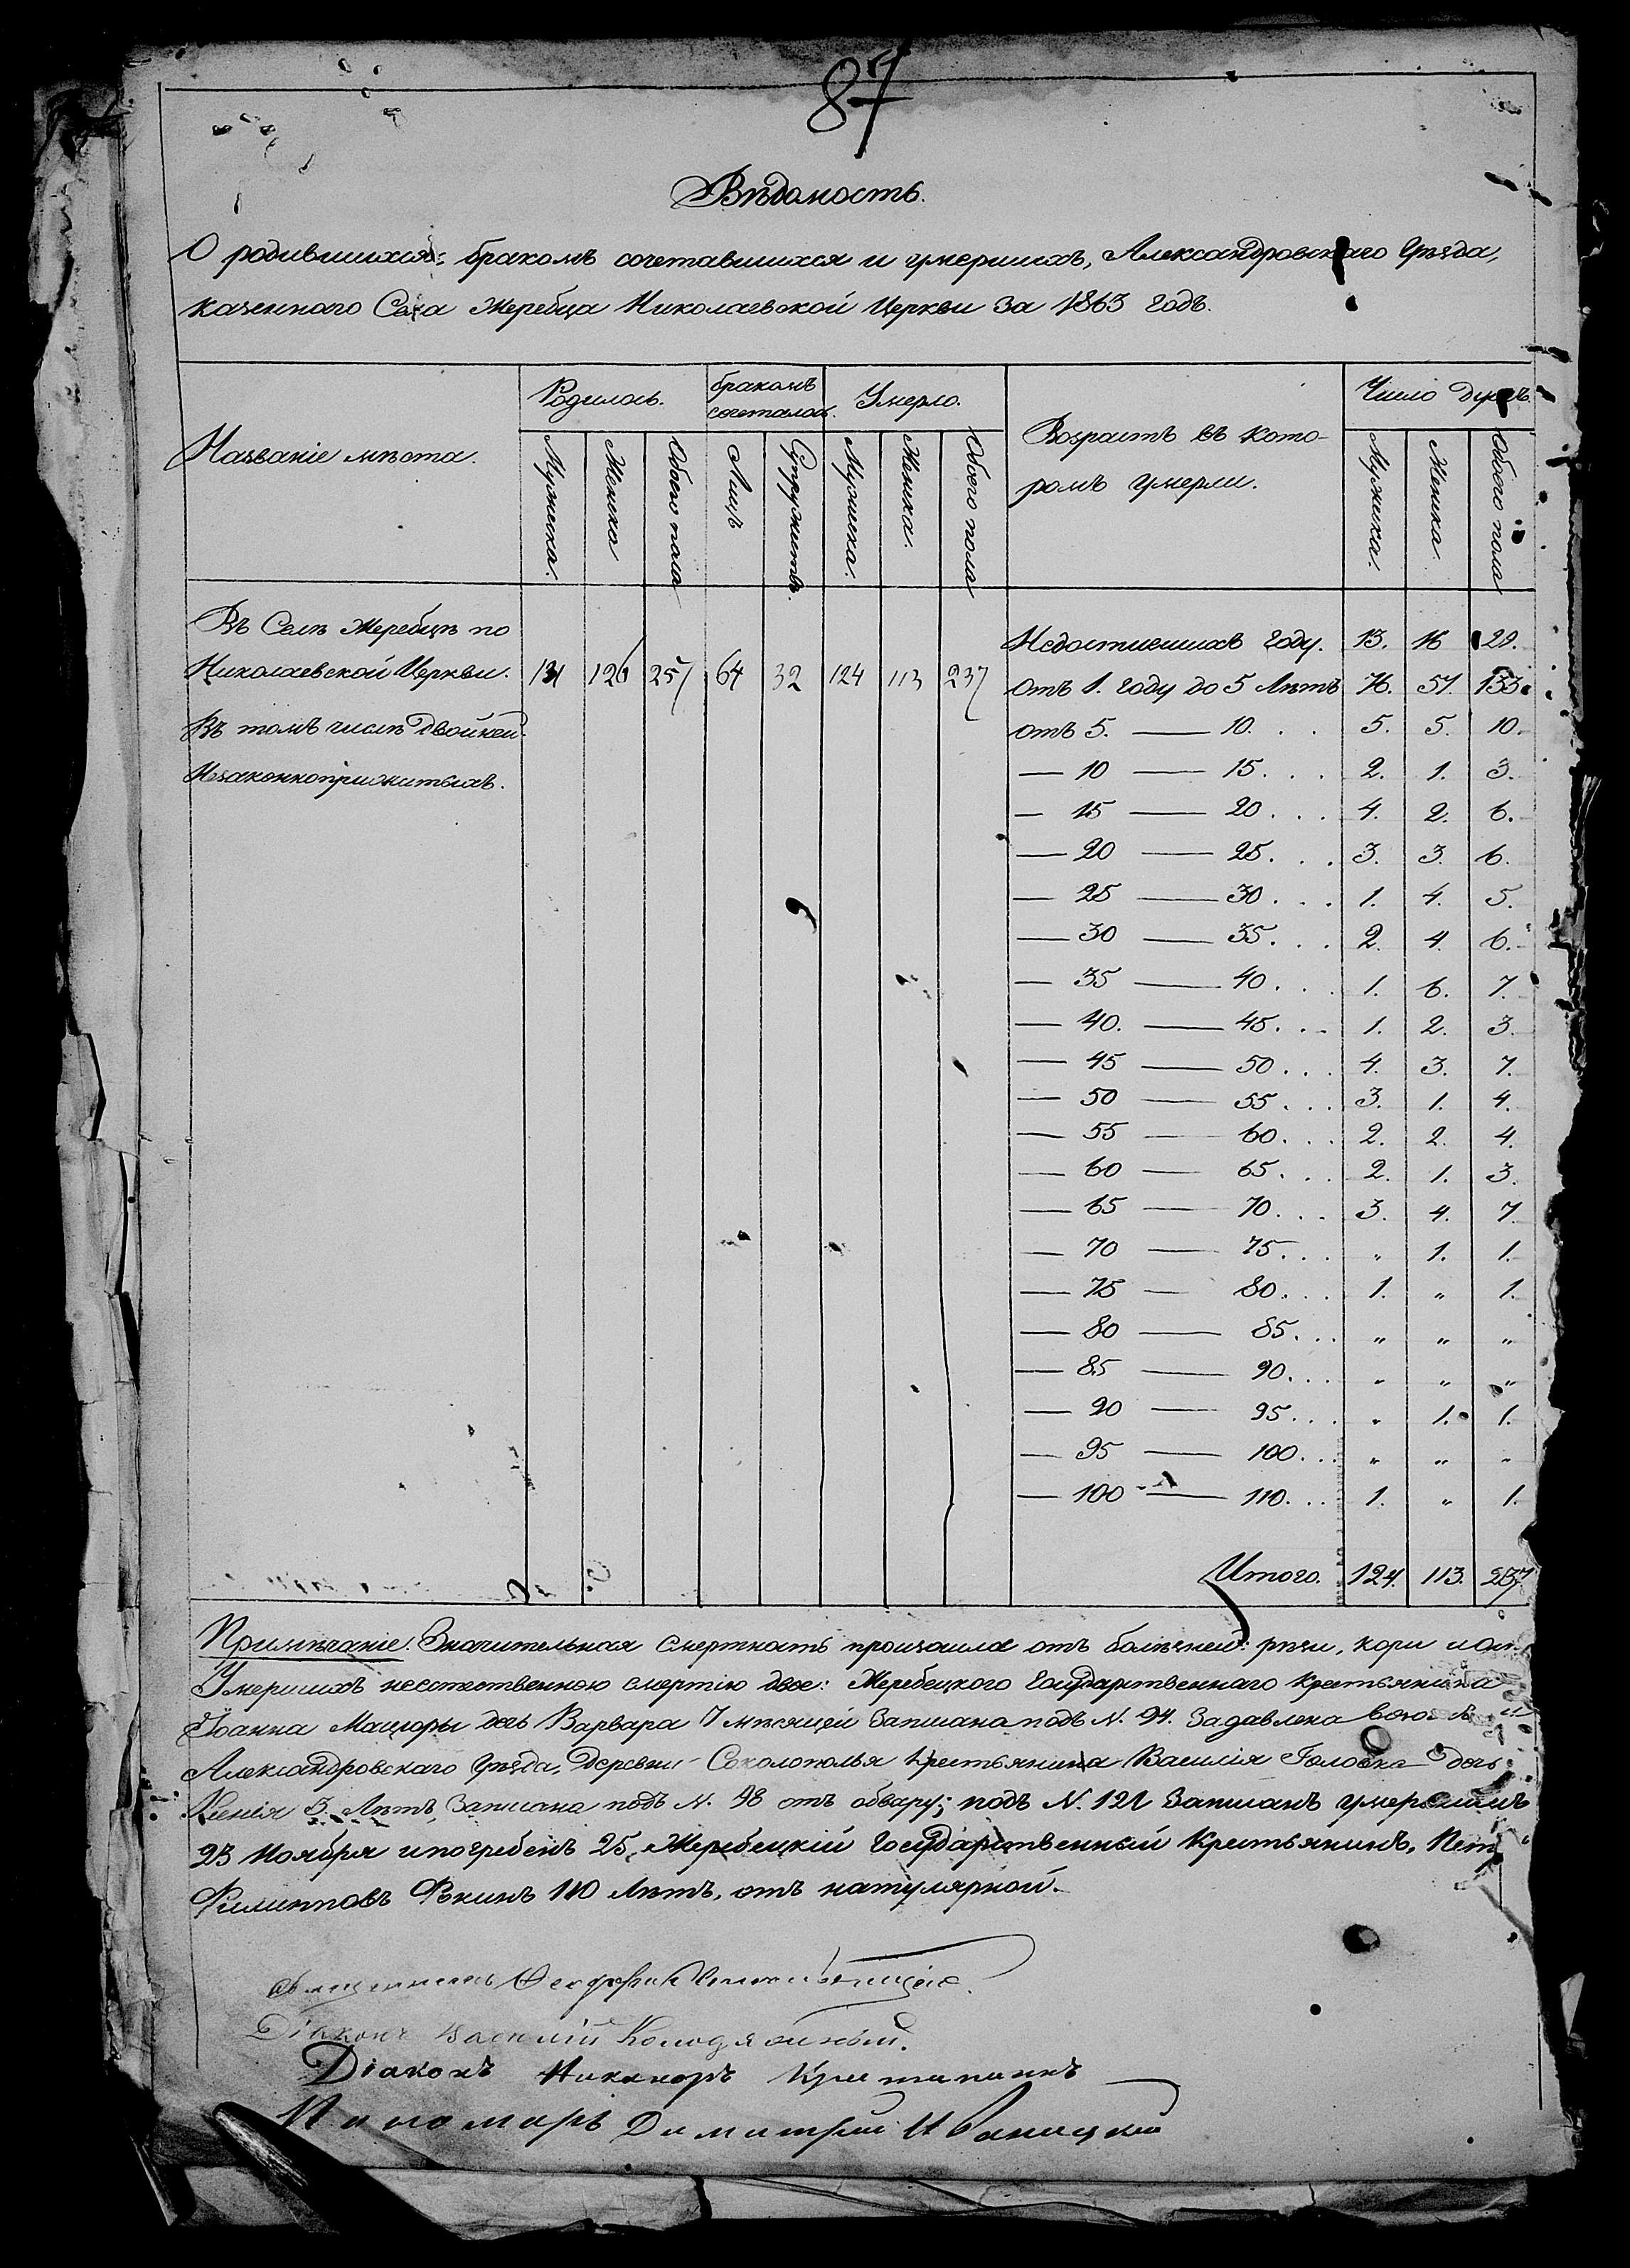 87
Вѣдомость.
О родившихся, бракомъ сочетавшихся и умершихъ, Александровскаго Уѣзда,
казеннаго Села Жеребца Николаевской Церкви за 1863 годъ.
Названіе мѣста.
Родилось.
бракомъ
сочеталось.
Умерло.
Возрастъ въ кото-
ромъ умерли.
Число душъ.
Мужеска.
Женска
Обоего пола
Лицъ
Супружествъ.
Мужеска.
Женска.
Обоего пола
Мужеска.
Женска.
Обоего пола
Въ Селѣ Жеребцѣ по
Николаевской Церкви. 131 126 257 64 32 124 113 237
Въ томъ числѣ двойней
Незаконноприжитыхъ.
Недостигшихъ году. 13. 16 29.
отъ 1. году до 5 Лѣтъ 76. 57. 133.
отъ 5. — 10. . . 5. 5. 10.
— 10 — 15. . . . 2. 1. 3.
— 15 — 20. . . . 4. 2. 6.
— 20 — 25. . . . 3. 3. 6.
— 25 — 30. . . . 1. 4. 5.
— 30 — 35. . . . 2. 4. 6.
— 35 — 40. . . . 1. 6. 7.
— 40. — 45. . . . 1. 2. 3.
— 45 — 50. . . . 4. 3. 7.
— 50 — 55. . . . 3. 1. 4.
— 55 — 60. . . . 2. 2. 4.
— 60 — 65. . . . 2. 1. 3.
— 65 — 70. . . . 3. 4. 7.
— 70 — 75. . . . „ 1. 1.
— 75 — 80. . . . 1. „ 1.
— 80 — 85. . . . „ „ „
— 85 — 90. . . . „ „ „
— 90 — 95. . . . „ 1. 1.
— 95 — 100. . . „ „ „
— 100 — 110. . . 1. „ 1.
Итого. 124. 113. 237
Примѣчаніе. Значительная смертность произошла отъ болѣзней: рѣзи, кори и
Умершихъ неестественною смертію двое: Жеребецкого Государственнаго Крестьянина
Іоанна Мацюры дочь Варвара 7 мѣсяцей записана подъ N. 94. задавлена
Александровскаго Уѣзда, деревни Соколополья Крестьянина Василія Головка дочь
Ксенія 3. Лѣтъ, записана подъ N. 98 отъ обвару; подъ N. 121 записанъ умершимъ
23 Ноября и погребенъ 25, Жеребецкій Государственный Крестьянинъ, Петр
Филипповъ Фокинъ 110 Лѣтъ, отъ натулярной.
Священникъ
Діаконъ Василій Колодяжный.
Діаконъ Никаноръ
Пономарь Димитрій Иваницкій